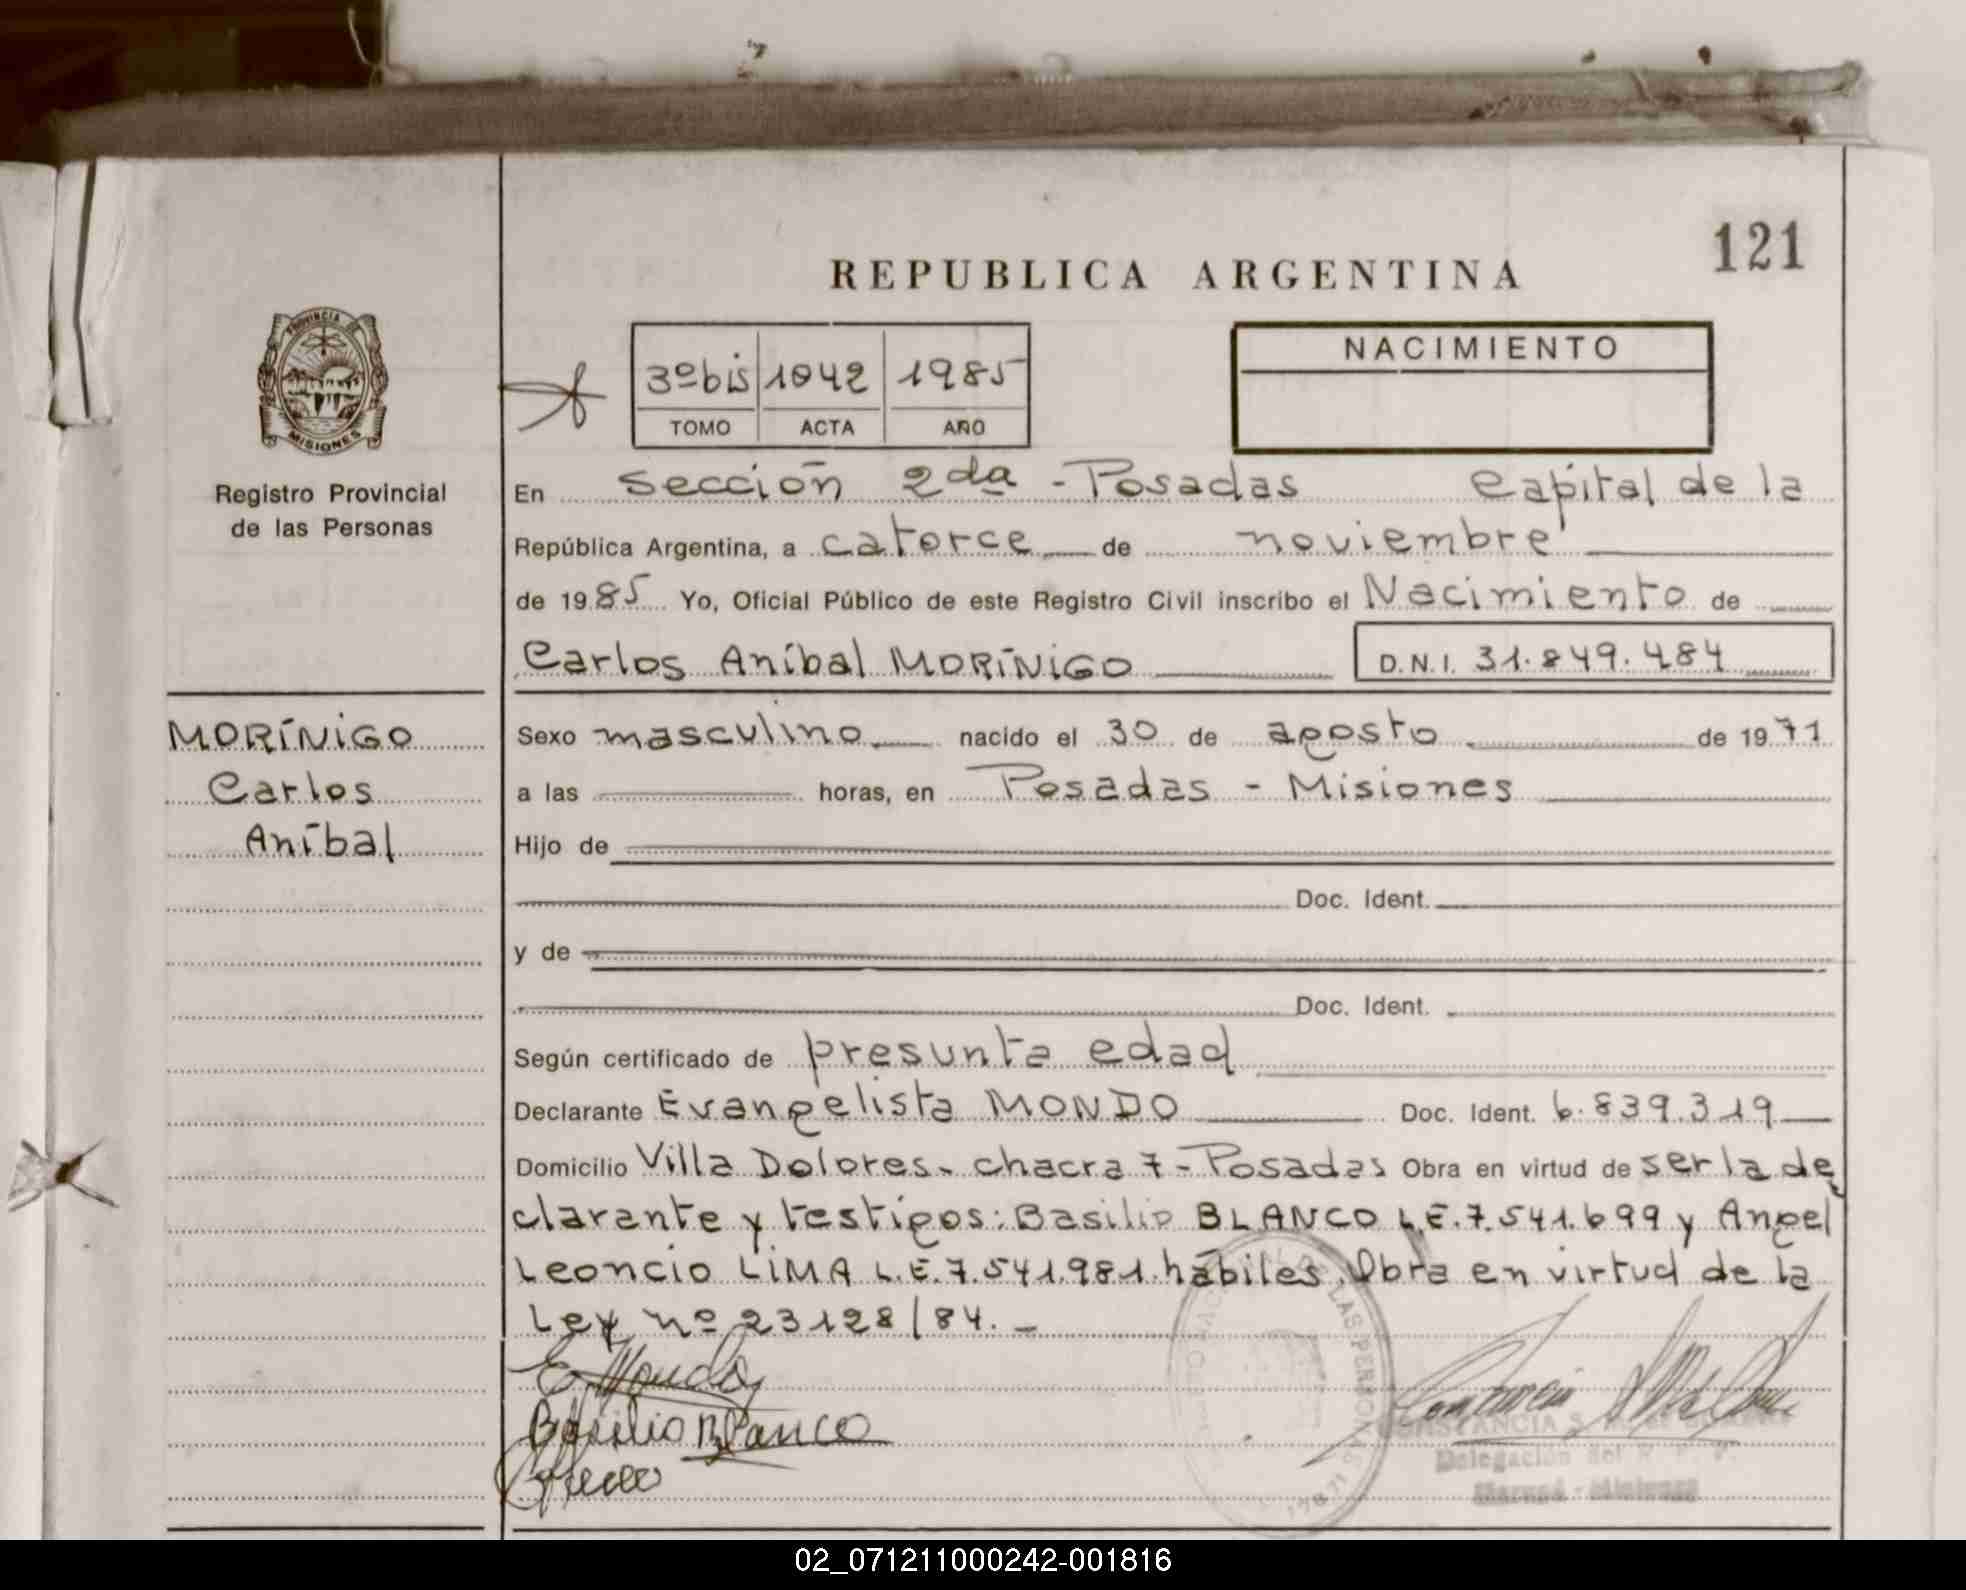 121
REPUBLICA ARGENTINA
PROVINCIA DE
MISIONES
Registro Provincial
de las Personas
3º bis 1042 1985
TOMO ACTA AÑO
NACIMIENTO
En Sección 2da - Posadas Capital de la
República Argentina, a catorce de noviembre
de 1985 Yo, Oficial Público de este Registro Civil inscribo el Nacimiento de
Carlos Aníbal MORÍNIGO D.N.I. 31.849.484
MORÍNIGO
Carlos
Aníbal
Sexo masculino nacido el 30 de agosto de 1971
a las horas, en Posadas - Misiones
Hijo de
Doc. Ident.
y de
Doc. Ident.
Según certificado de presunta edad
Declarante Evangelista MONDO Doc. Ident. 6.839.319
Domicilio Villa Dolores - chacra 7 - Posadas Obra en virtud de ser la de
clarante y testigos: Basilio BLANCO L.E. 7.541.699 y Angel
Leoncio LIMA L.E. 7.541.981 hábiles. Obra en virtud de la
Ley nº 23128/84. -
E. Mondo
Basilio Blanco
LAS PERSONAS
CONSTANCIA S.
Delegación del R. P. P.
02_071211000242-001816